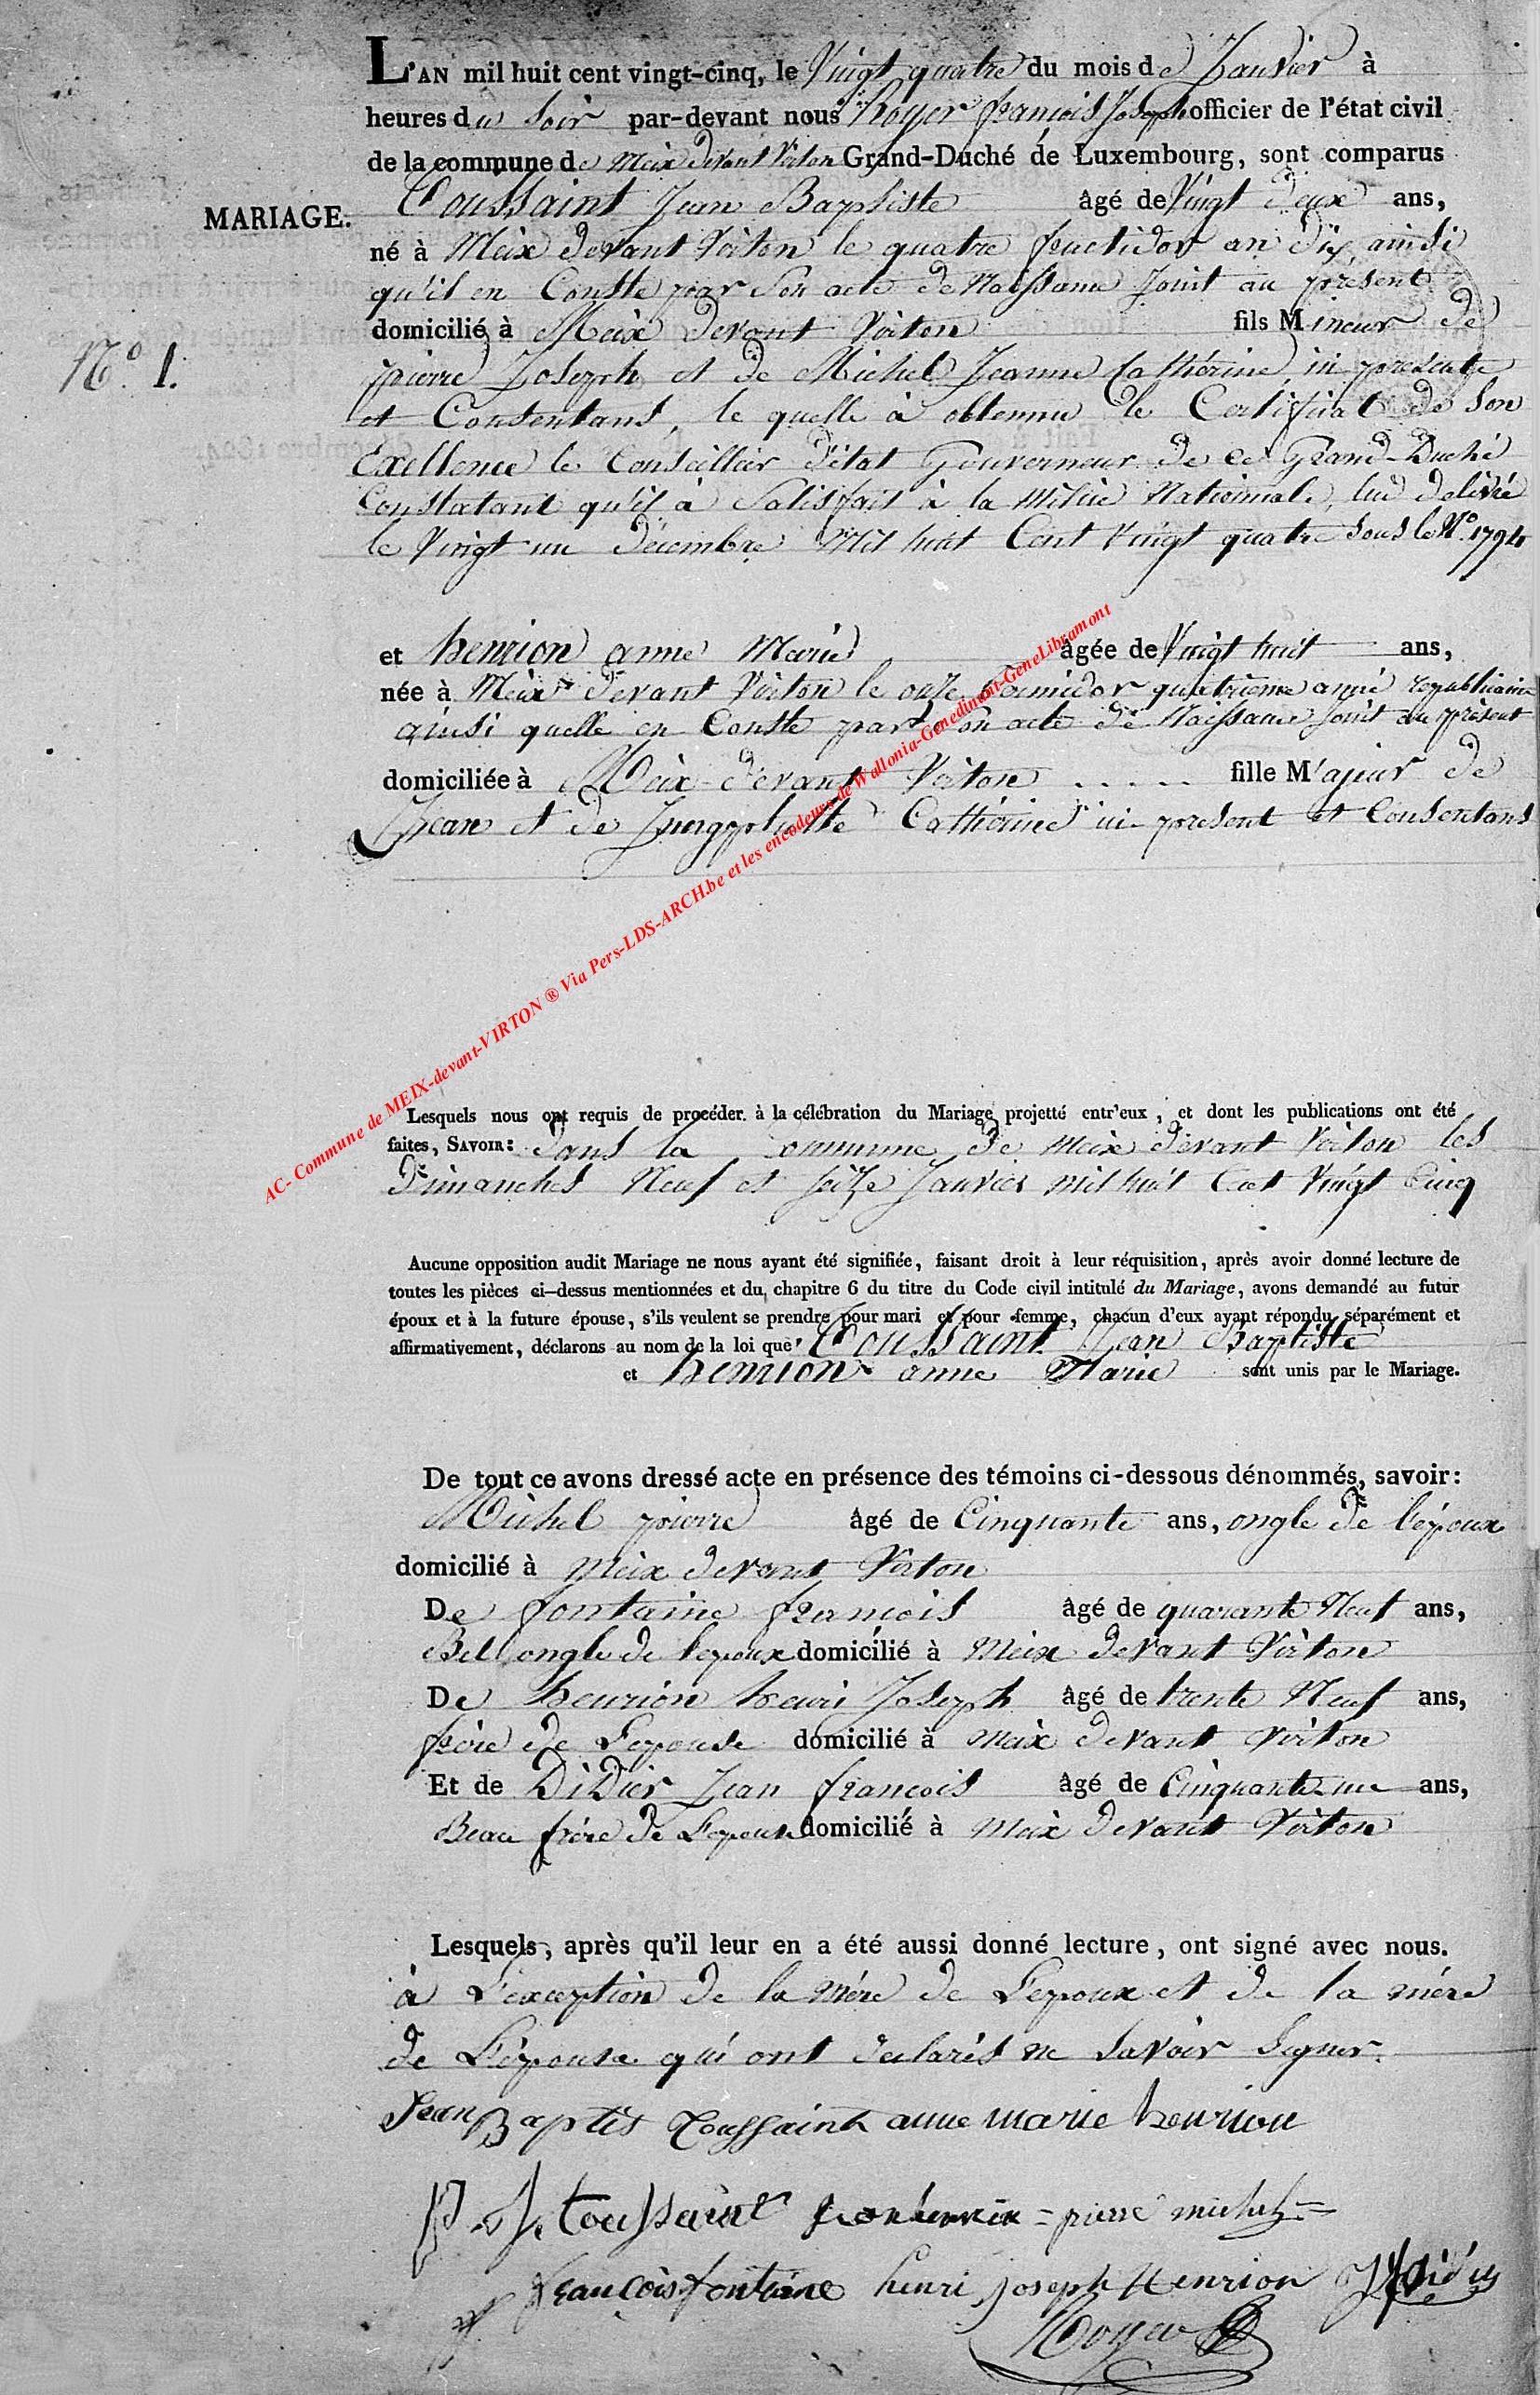 L'AN mil huit cent vingt-cinq, le Vingt quatre du mois de Janvier à
heures du Soir par-devant nous Royer françois Joseph officier de l'état civil
de la commune de Meix devant Virton Grand-Duché de Luxembourg, sont comparus
MARIAGE.
Toussaint Jean Baptiste âgé de Vingt deux ans,
né à Meix devant Virton le quatre fructidor an dix ainsi
qu'il en Conste par Son acte de Naissance Joint au présent
domicilié à Meix devant Virton fils Mineur de
N.º 1.
pierre Joseph et de Michel Jeanne Cathérine ici presente
et Consentans, le quelle à obtennu le Certificat de Son
Exellence le Conseiller d'état Gouverneur de ce Grand-Duché
Constatant qu'il à Satisfait à la Milice Nationnale, lui delivré
le Vingt un décembre Mil huit Cent Vingt quatre Sous le Nº. 1794
et henrion anne Marie âgée de Vingt huit ans,
née à Meix devant Virton le onze quatrieme anné republicaine
ainsi quelle en Conste par Son acte de Naissance Joint au présent
domiciliée à Meix devant Virton . . . . . fille Majeur de
Jean et de Cathérine ici present et Consentans
AC- Commune de MEIX-devant-VIRTON ® Via Pers-LDS-ARCH.be et les encodeurs de Wallonia-Genedinant-GeneLibramont
Lesquels nous ont requis de procéder à la célébration du Mariage projetté entr'eux, et dont les publications ont été
faites, SAVOIR: Dans la Commune de Meix devant Virton les
Dimanches Neuf et Seize Janvier mil huit Cent Vingt Cinq
Aucune opposition audit Mariage ne nous ayant été signifiée, faisant droit à leur réquisition, après avoir donné lecture de
toutes les pièces ci-dessus mentionnées et du chapitre 6 du titre du Code civil intitulé du Mariage, avons demandé au futur
époux et à la future épouse, s'ils veulent se prendre pour mari et pour femme, chacun d'eux ayant répondu séparément et
affirmativement, déclarons au nom de la loi que Toussaint Jean Baptiste
et henrion anne Marie sont unis par le Mariage.
De tout ce avons dressé acte en présence des témoins ci-dessous dénommés, savoir:
Michel pierre âgé de Cinquante ans, ongle de l'époux
domicilié à Meix devant Virton
De fontaine françois âgé de quarante Neuf ans,
Bel ongle de l'epoux domicilié à Meix devant Virton
De henrion henri Joseph âgé de trente Neuf ans,
frère de L'epouse domicilié à Meix devant Virton
Et de DiDier Jean francois âgé de Cinquante un ans,
Beau frére de L'epouse domicilié à Meix devant Virton
Lesquels, après qu'il leur en a été aussi donné lecture, ont signé avec nous.
à L'exception de la Mére de L'epoux et de la mére
de L'épouse qui ont declarés ne Savoir Signer.
Jean Baptis Toussaint anne marie henrion
P. J. toussaint = pierre michel =
francois fontaine henri joseph Henrion
Royer